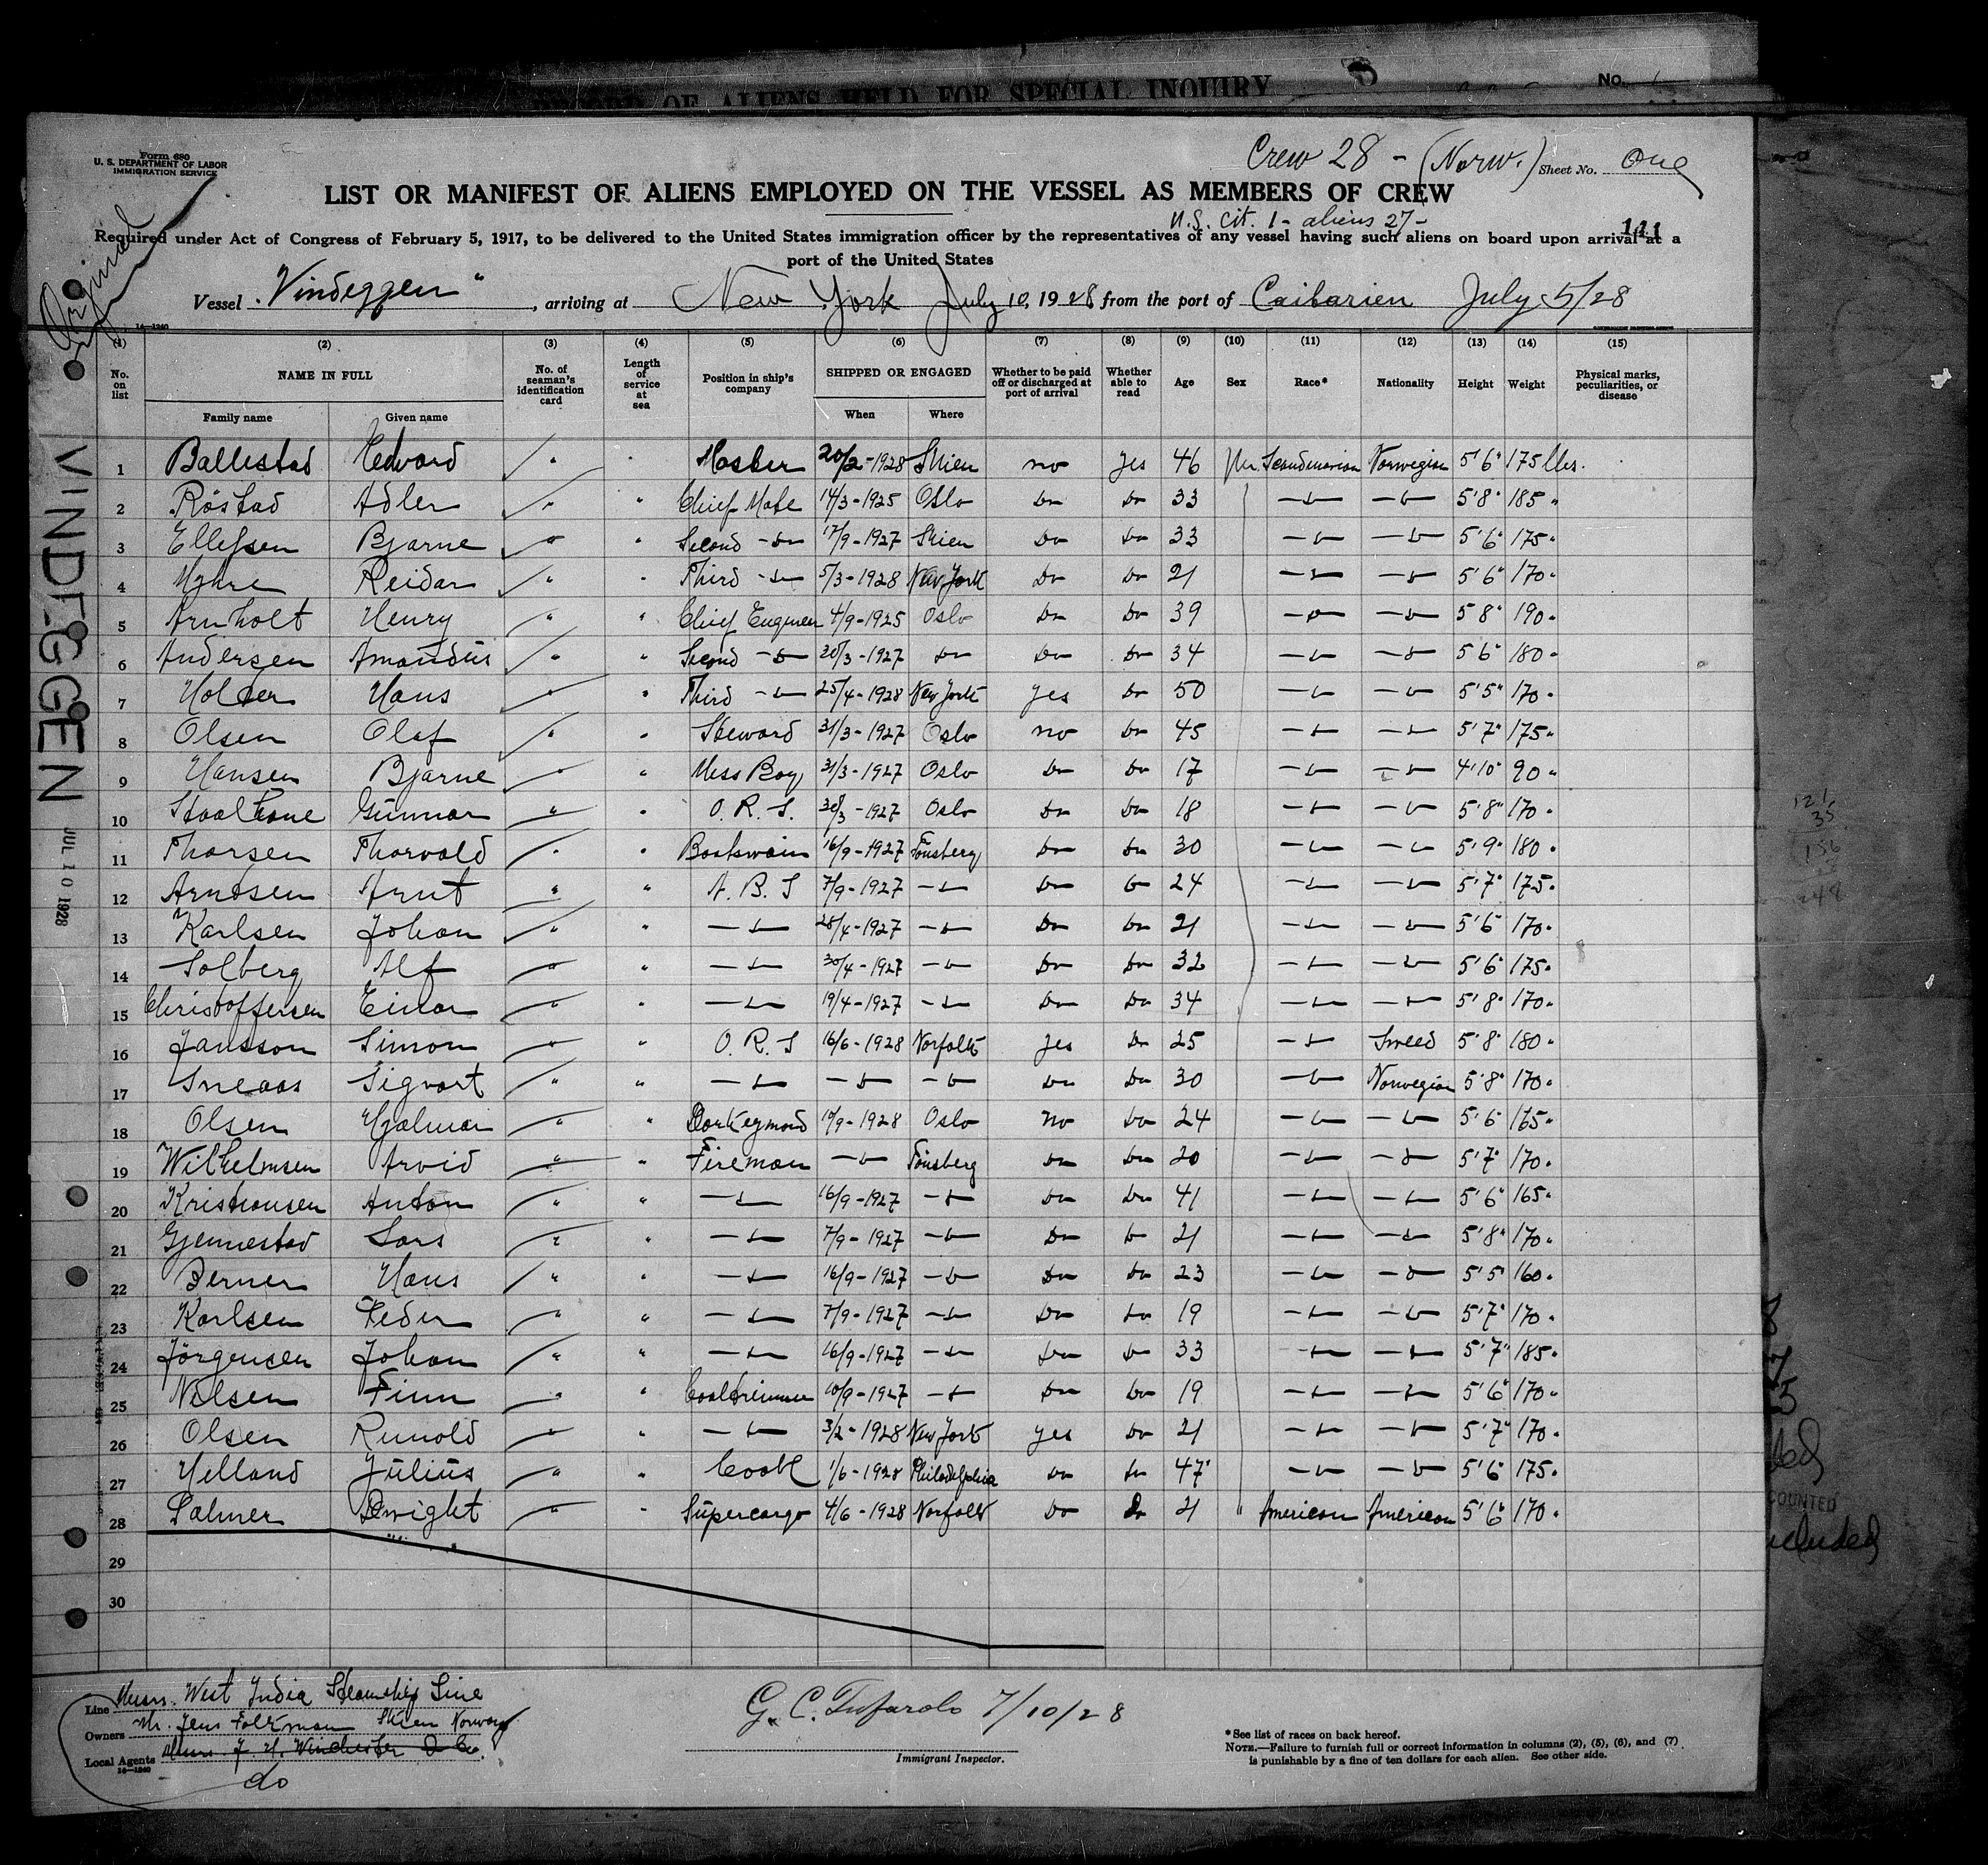 RECORD OF ALIENS HELD FOR SPECIAL INQUIRY
No.
Form 680
U. S. DEPARTMENT OF LABOR
IMMIGRATION SERVICE
Crew 28 - (Norw.) Sheet No. One
LIST OR MANIFEST OF ALIENS EMPLOYED ON THE VESSEL AS MEMBERS OF CREW
U.S. cit. 1 - aliens 27 -
141
Original
Required under Act of Congress of February 5, 1917, to be delivered to the United States immigration officer by the representatives of any vessel having such aliens on board upon arrival at a
port of the United States
Vessel "Vindeggen", arriving at New York July 10, 1928 from the port of Caibarien July 5/28
14-1240
(1) (2) (3) (4) (5) (6) (7) (8) (9) (10) (11) (12) (13) (14) (15)
No. on list NAME IN FULL Family name Given name No. of seaman's identification card Length of service at sea Position in ship's company SHIPPED OR ENGAGED When Where Whether to be paid off or discharged at port of arrival Whether able to read Age Sex Race* Nationality Height Weight Physical marks, peculiarities, or disease
1 Ballestad Hedvard " " Master 20/2-1928 Skien no yes 46 m Scandinavian Norwegian 5'6" 175 lbs.
2 Röstad Adler " " Chief Mate 14/3-1925 Oslo Do Do 33 -"- -"- 5'8" 185 "
3 Ellefsen Bjarne " " Second -"- 17/9-1927 Skien Do Do 33 -"- -"- 5'6" 175 "
4 Myhre Reidar " " Third -"- 5/3-1928 New York Do Do 21 -"- -"- 5'6" 170 "
5 Arnholt Henry " " Chief Engineer 4/9-1925 Oslo Do Do 39 -"- -"- 5'8" 190 "
6 Andersen Amandus " " Second -"- 20/3-1927 Do Do Do 34 -"- -"- 5'6" 180 "
7 Holter Hans " " Third -"- 25/4-1928 New York yes Do 50 -"- -"- 5'5" 170 "
8 Olsen Olaf " " Steward 31/3-1927 Oslo no Do 45 -"- -"- 5'7" 175 "
9 Hansen Bjarne " " Mess Boy 31/3-1927 Oslo Do Do 17 -"- -"- 4'10" 90 "
10 Gunnar " " O. R. S. 30/3-1927 Oslo Do Do 18 -"- -"- 5'8" 170 "
11 Thorsen Thorvald " " Boatswain 16/9-1927 Tönsberg Do Do 30 -"- -"- 5'9" 180 "
12 Arndsen Arnt " " A. B. S 7/9-1927 -"- Do Do 24 -"- -"- 5'7" 175 "
13 Karlsen Johan " " -"- 28/4-1927 -"- Do Do 21 -"- -"- 5'6" 170 "
14 Solberg Alf " " -"- 30/4-1927 -"- Do Do 32 -"- -"- 5'6" 175 "
15 Christoffersen Einar " " -"- 19/4-1927 -"- Do Do 34 -"- -"- 5'8" 170 "
16 Jansson Simon " " O. R. S 16/6-1928 Norfolk yes Do 25 -"- Sweed 5'8" 180 "
17 Sneaas Sigvart " " -"- -"- -"- Do Do 30 -"- Norwegian 5'8" 170 "
18 Olsen Hjalmar " " Donkeymand 10/9-1928 Oslo no Do 24 -"- -"- 5'6" 165 "
19 Wilhelmsen Arvid " " Fireman -"- Tönsberg Do Do 20 -"- -"- 5'7" 170 "
20 Kristiansen Anton " " -"- 16/9-1927 -"- Do Do 41 -"- -"- 5'6" 165 "
21 Gjennestad Lars " " -"- 7/9-1927 -"- Do Do 21 -"- -"- 5'8" 170 "
22 Berner Hans " " -"- 16/9-1927 -"- Do Do 23 -"- -"- 5'5" 160 "
23 Karlsen Peder " " -"- 7/9-1927 -"- Do Do 19 -"- -"- 5'7" 170 "
24 Jörgensen Johan " " -"- 16/9-1927 -"- Do Do 33 -"- -"- 5'7" 185 "
25 Nilsen Finn " " Coaltrimmer 10/9-1927 -"- Do Do 19 -"- -"- 5'6" 170 "
26 Olsen Runold " " -"- 3/2-1928 New York yes Do 21 -"- -"- 5'7" 170 "
27 Helland Julius " " Cook 1/6-1928 Philadelphia Do Do 47 -"- -"- 5'6" 175 "
28 Salmer Dwight " " Supercargo 4/6-1928 Norfolk Do Do 21 " American American 5'6" 170 "
29
30
VINDEGGEN
JUL 10 1928
Line Messrs. West India Steamship Line
Owners Mr. Jens Folkman Skien Norway
Local Agents Messrs. J. H. Winchester & Co.
14-1240
do
G. C. Tufarolo 7/10/28
Immigrant Inspector.
*See list of races on back hereof.
NOTE.—Failure to furnish full or correct information in columns (2), (5), (6), and (7)
is punishable by a fine of ten dollars for each alien. See other side.
121
35
156
248
COUNTED